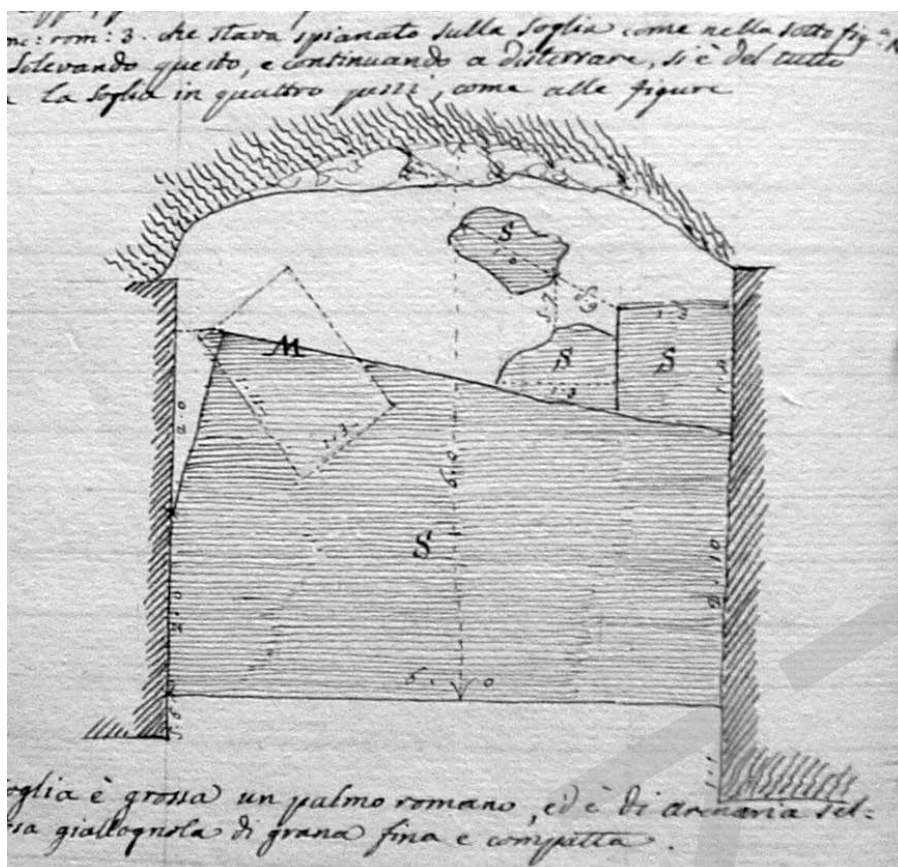 rom: 3. che stava spianato sulla soglia come nella sotto fig.ª
solevando questo, e continuando a disterrare, si è del tutto
a la soglia in quattro pezzi, come alle figure
S
M
S
S
1. 3
1. 3
1. 11
1. 3
2. 0
6. 0
S
2. 0
2. 10
6. 0
1. 1
oglia è grossa un palmo romano, ed è di arenaria sel=
sa giallognola di grana fina e compatta.